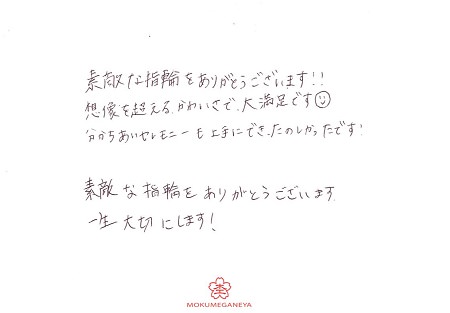 素敵な指輪をありがとうございます!!
想像を超えるかわいさで、大満足です☺
分かちあいセレモニーも上手にでき、たのしかったです!
素敵な指輪をありがとうございます。
一生大切にします!
MOKUMEGANEYA